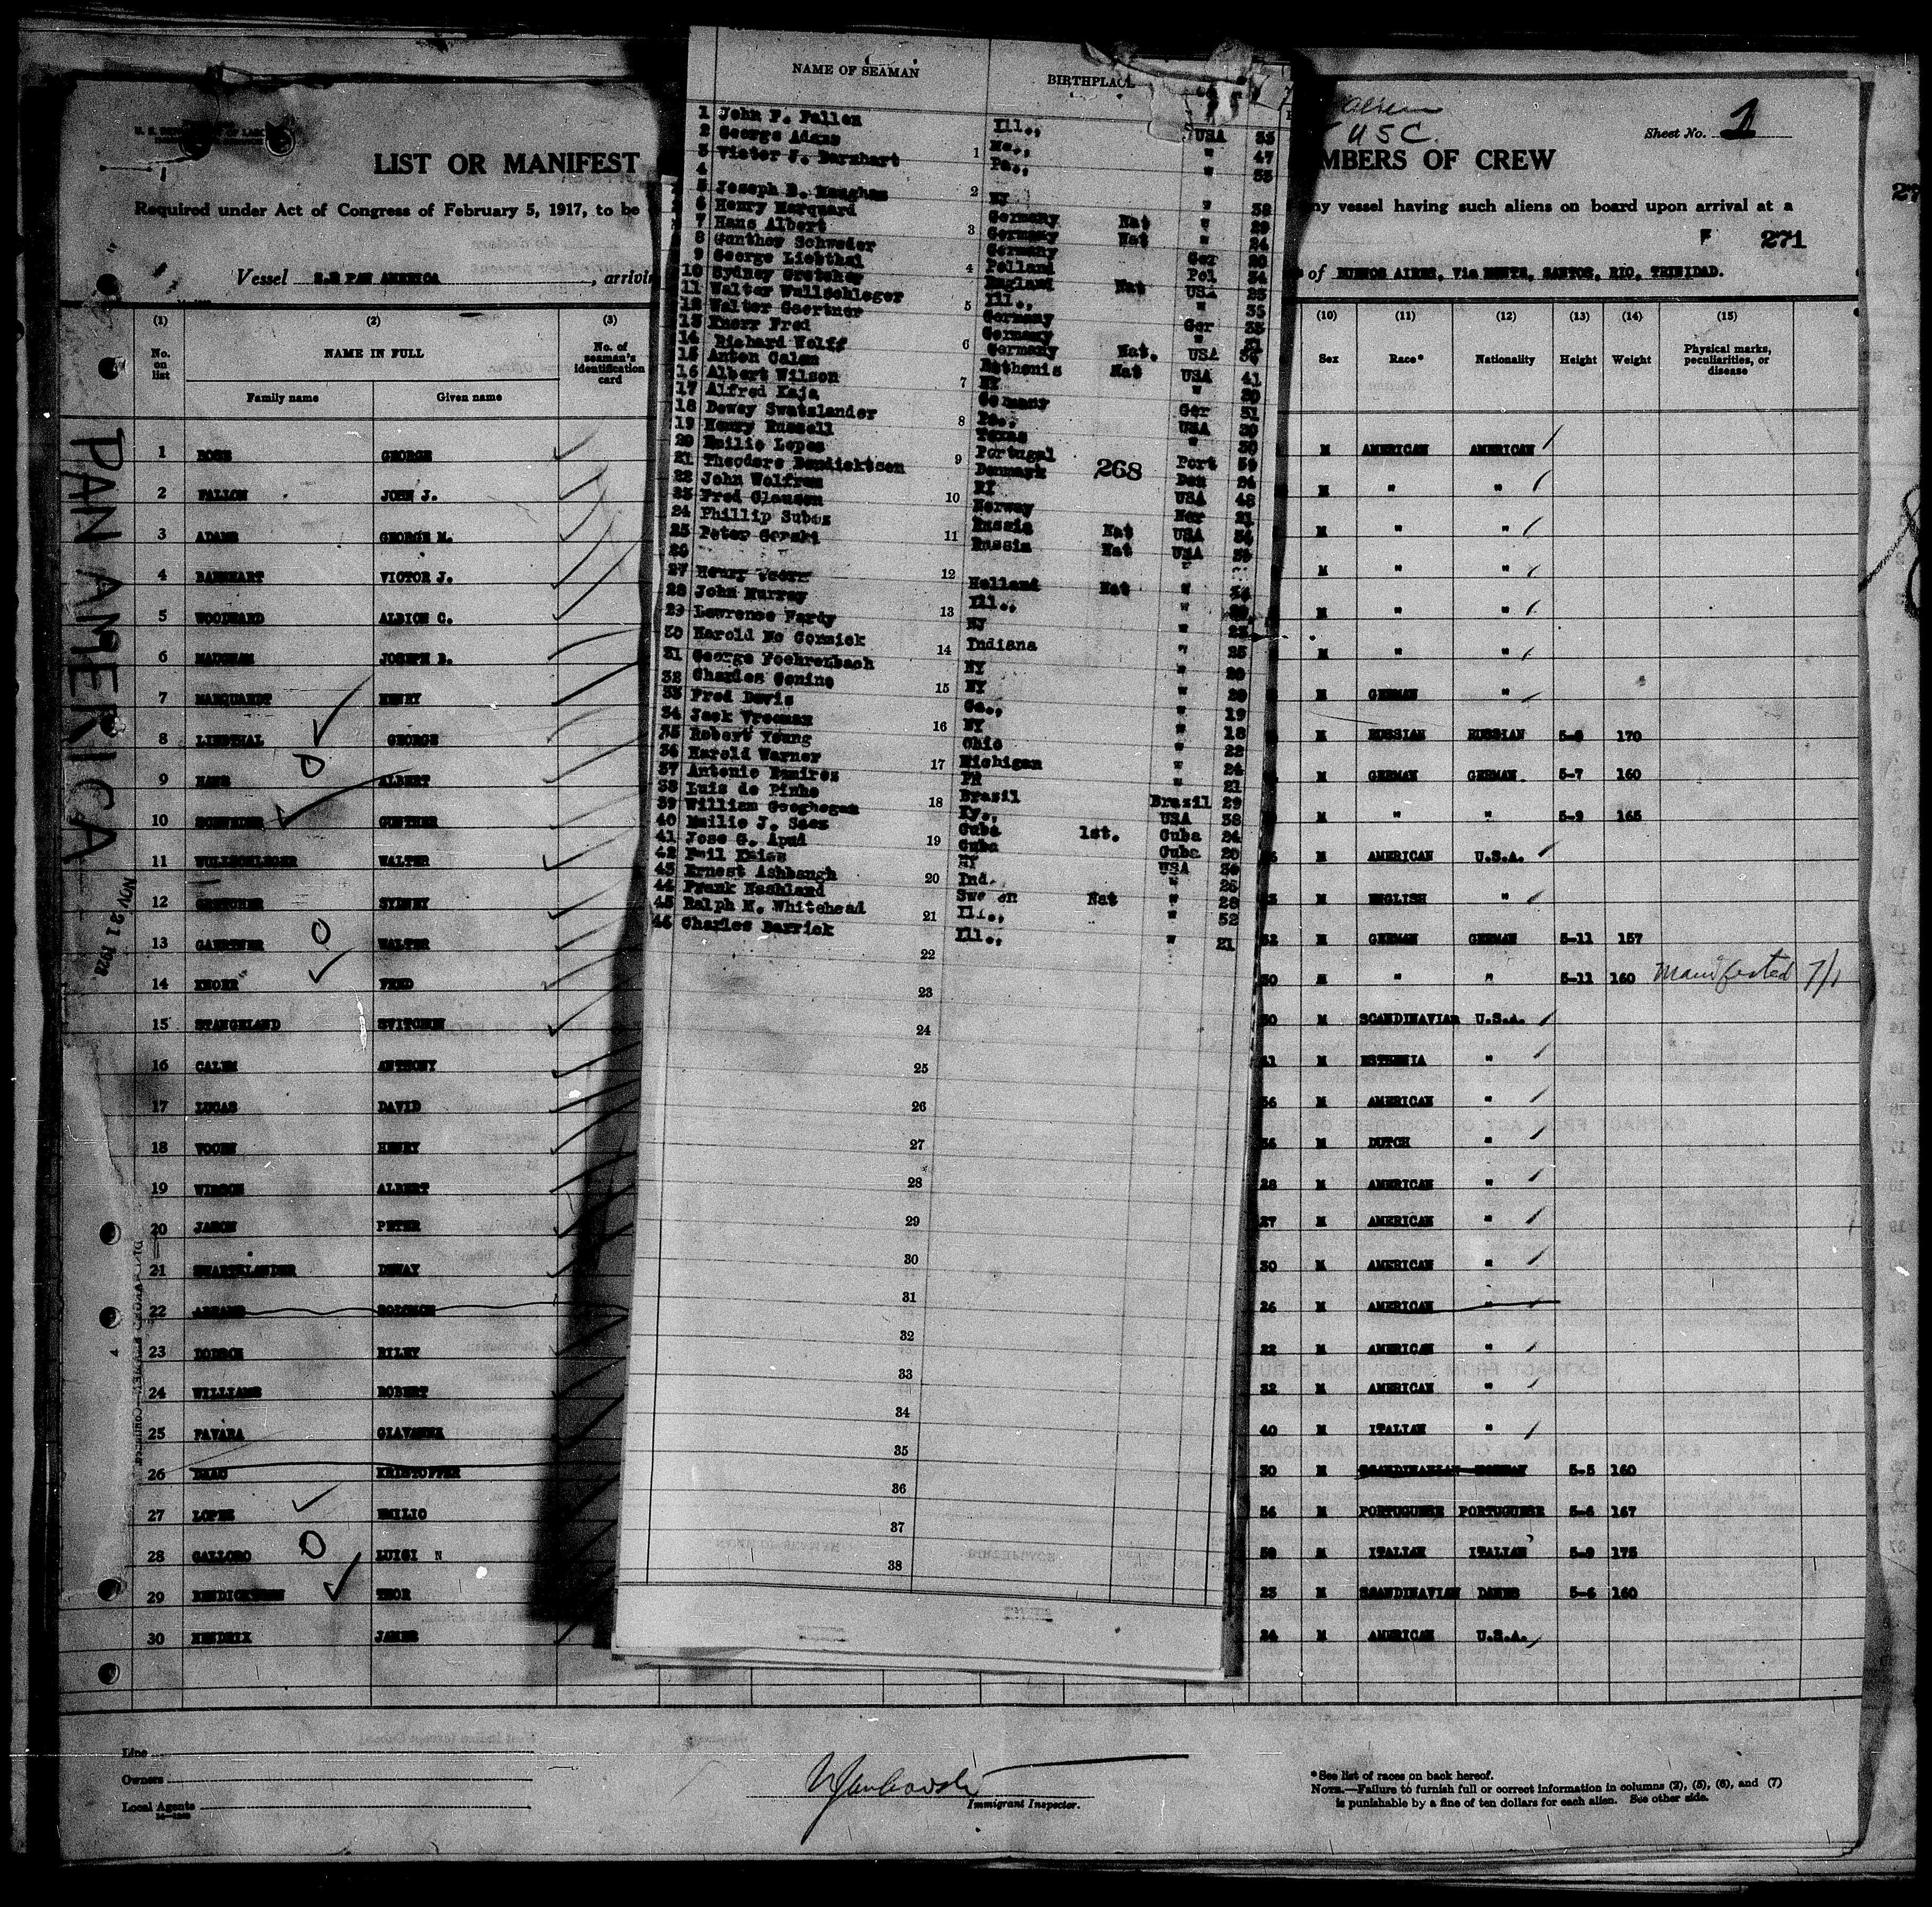 U. S. DEPARTMENT OF LABOR
LIST OR MANIFEST
MBERS OF CREW
Alien
USC.
Sheet No. 1
Required under Act of Congress of February 5, 1917, to be
ny vessel having such aliens on board upon arrival at a
F 271
Vessel S.S PAN AMERICA, arrivin
of BUENOS AIRES, Via MONTE, SANTOS, RIO, TRINIDAD.
PAN AMERICA
NOV 21 1928
(1) (2) (3) (10) (11) (12) (13) (14) (15)
No. on list NAME IN FULL No. of seaman's identification card Sex Race* Nationality Height Weight Physical marks, peculiarities, or disease
Family name Given name
1 ROSE GEORGE M AMERICAN AMERICAN
2 FALLON JOHN J. M " "
3 ADAMS GEORGE M. M " "
4 BARNHART VICTOR J. M " "
5 WOODWARD ALBION C. M " "
6 MAUGHAM JOSEPH B. M " "
7 MARQUARDT HENRY M GERMAN "
8 LINDTHAL GEORGE M RUSSIAN RUSSIAN 170
9 HANS ALBERT M GERMAN GERMAN 5-7 160
10 SCHWEDER GUNTHER M " " 5-9 165
11 WULLSCHLEGER WALTER M AMERICAN U.S.A.
12 GRETCHER SYDNEY M ENGLISH "
13 GAERTNER WALTER 32 M GERMAN GERMAN 5-11 157
14 KNORR FRED 30 M " " 5-11 160 Manifested 7/1
15 STANGELAND 30 M SCANDINAVIAN U.S.A.
16 CALEM ANTHONY 41 M ESTHENIA "
17 LUCAS DAVID 36 M AMERICAN "
18 VOORN HENRY 36 M DUTCH "
19 ALBERT 28 M AMERICAN "
20 PETER 27 M AMERICAN "
21 SWARTSLANDER DEWAY 30 M AMERICAN "
22 ABRAMS SOLOMON 26 M AMERICAN "
23 DOBSON RILEY 22 M AMERICAN "
24 WILLIAMS ROBERT 32 M AMERICAN "
25 FAVARA 40 M ITALIAN "
26 KRISTOFFER 30 M SCANDINAVIAN 5-5 160
27 LOPEZ EMILIO 56 M PORTUGUESE PORTUGUESE 5-6 167
28 GALLORO LUIGI N 39 M ITALIAN ITALIAN 5-9 175
29 BENDICKTSON THOR 23 M SCANDINAVIAN DANES 5-6 160
30 HENDRIX JAMES 24 M AMERICAN U.S.A.
NAME OF SEAMAN BIRTHPLACE
1 John F. Fallen Ill., USA 33
2 George Adams " 47
3 Victor J. Barnhart Pa., "
4
5 Joseph B. Maugham NY " 38
6 Henry Marquard Germany Nat " 29
7 Hans Albert Germany Nat " 24
8 Gunther Schweder Germany Ger
9 George Liebthal Polland Pol 34
10 Sydney Gretcher England Nat USA
11 Walter Wullschleger Ill., " 35
12 Walter Goertner Germany Ger 33
13 Knorr Fred Germany "
14 Richard Wolff Germany Nat. USA
15 Anton Calem Esthonia Nat USA 41
16 Albert Wilson NY "
17 Alfred Kaja Germany Ger 31
18 Dewey Swatslander Pa., USA 30
19 Henry Russell Texas " 30
20 Emilio Lopes Portugal Port
21 Theodore Bendicktsen Denmark 268 Den 24
22 John Wolfrom RI USA 48
23 Fred Clausen Norway Nor 21
24 Phillip Subos Russia Nat USA 34
25 Peter Gorski Russia Nat USA
26
27 Henry Voorn Holland Nat "
28 John Murray Ill., "
29 Lawrence Fardy NY " 23
30 Harold Mc Cormick Indiana " 25
31 George Foehrenbach NY " 20
32 Charles Genine NY " 20
33 Fred Davis Ga., " 19
34 Jack Vrooman NY " 18
35 Robert Young Ohio " 22
36 Harold Warner Michigan " 24
37 Antonio Ramirez PR " 21
38 Luis de Pinho Brasil Brazil 29
39 William Geoghegan Ky., USA 38
40 Emilio J. Saez Cuba 1st. Cuba 24
41 Jose G. Apud Cuba Cuba 20
42 NY USA
43 Ernest Ashbaugh Ind. " 26
44 Frank Nashland Sweden Nat " 28
45 Ralph M. Whitehead Ill., " 52
46 Charles Barrick Ill., " 21
1
2
3
4
5
6
7
8
9
10
11
12
13
14
15
16
17
18
19
20
21
22
23
24
25
26
27
28
29
30
31
32
33
34
35
36
37
38
Line
Owners
Local Agents
Immigrant Inspector.
* See list of races on back hereof.
NOTE.—Failure to furnish full or correct information in columns (2), (5), (6), and (7)
is punishable by a fine of ten dollars for each alien. See other side.